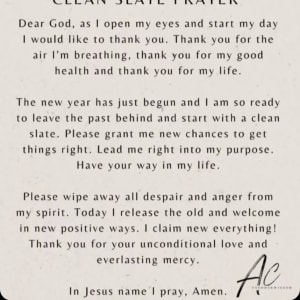 CLEAN SLATE PRAYER
Dear God, as I open my eyes and start my day
I would like to thank you. Thank you for the
air I'm breathing, thank you for my good
health and thank you for my life.
The new year has just begun and I am so ready
to leave the past behind and start with a clean
slate. Please grant me new chances to get
things right. Lead me right into my purpose.
Have your way in my life.
Please wipe away all despair and anger from
my spirit. Today I release the old and welcome
in new positive ways. I claim new everything!
Thank you for your unconditional love and
everlasting mercy.
In Jesus name I pray, Amen.
AC